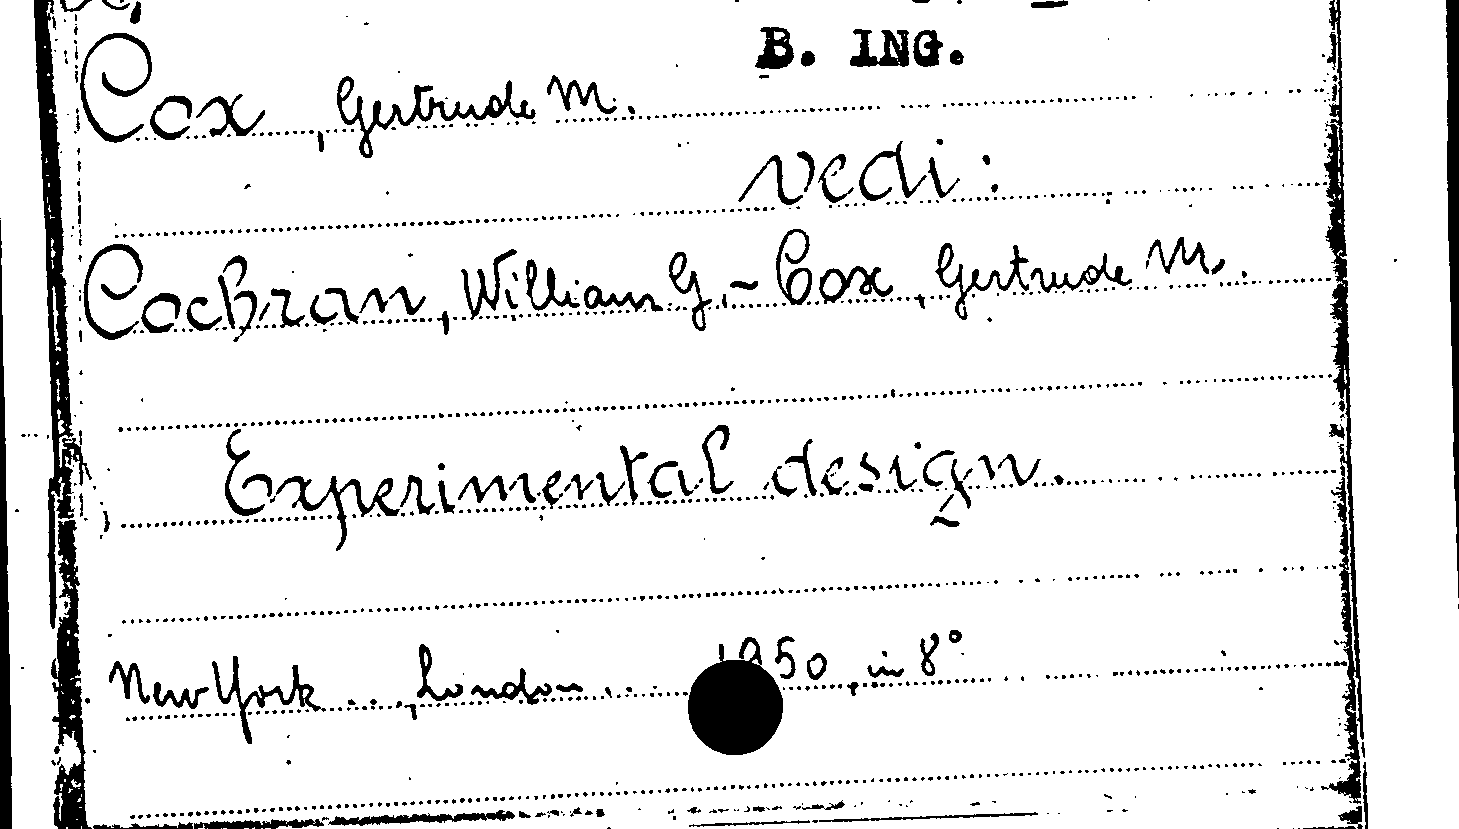 B. ING.
Cox, Gertrude M.
vedi:
Cochran, William G. - Cox, Gertrude M.
Experimental design.
New York ..., London ... 1950, in 8°